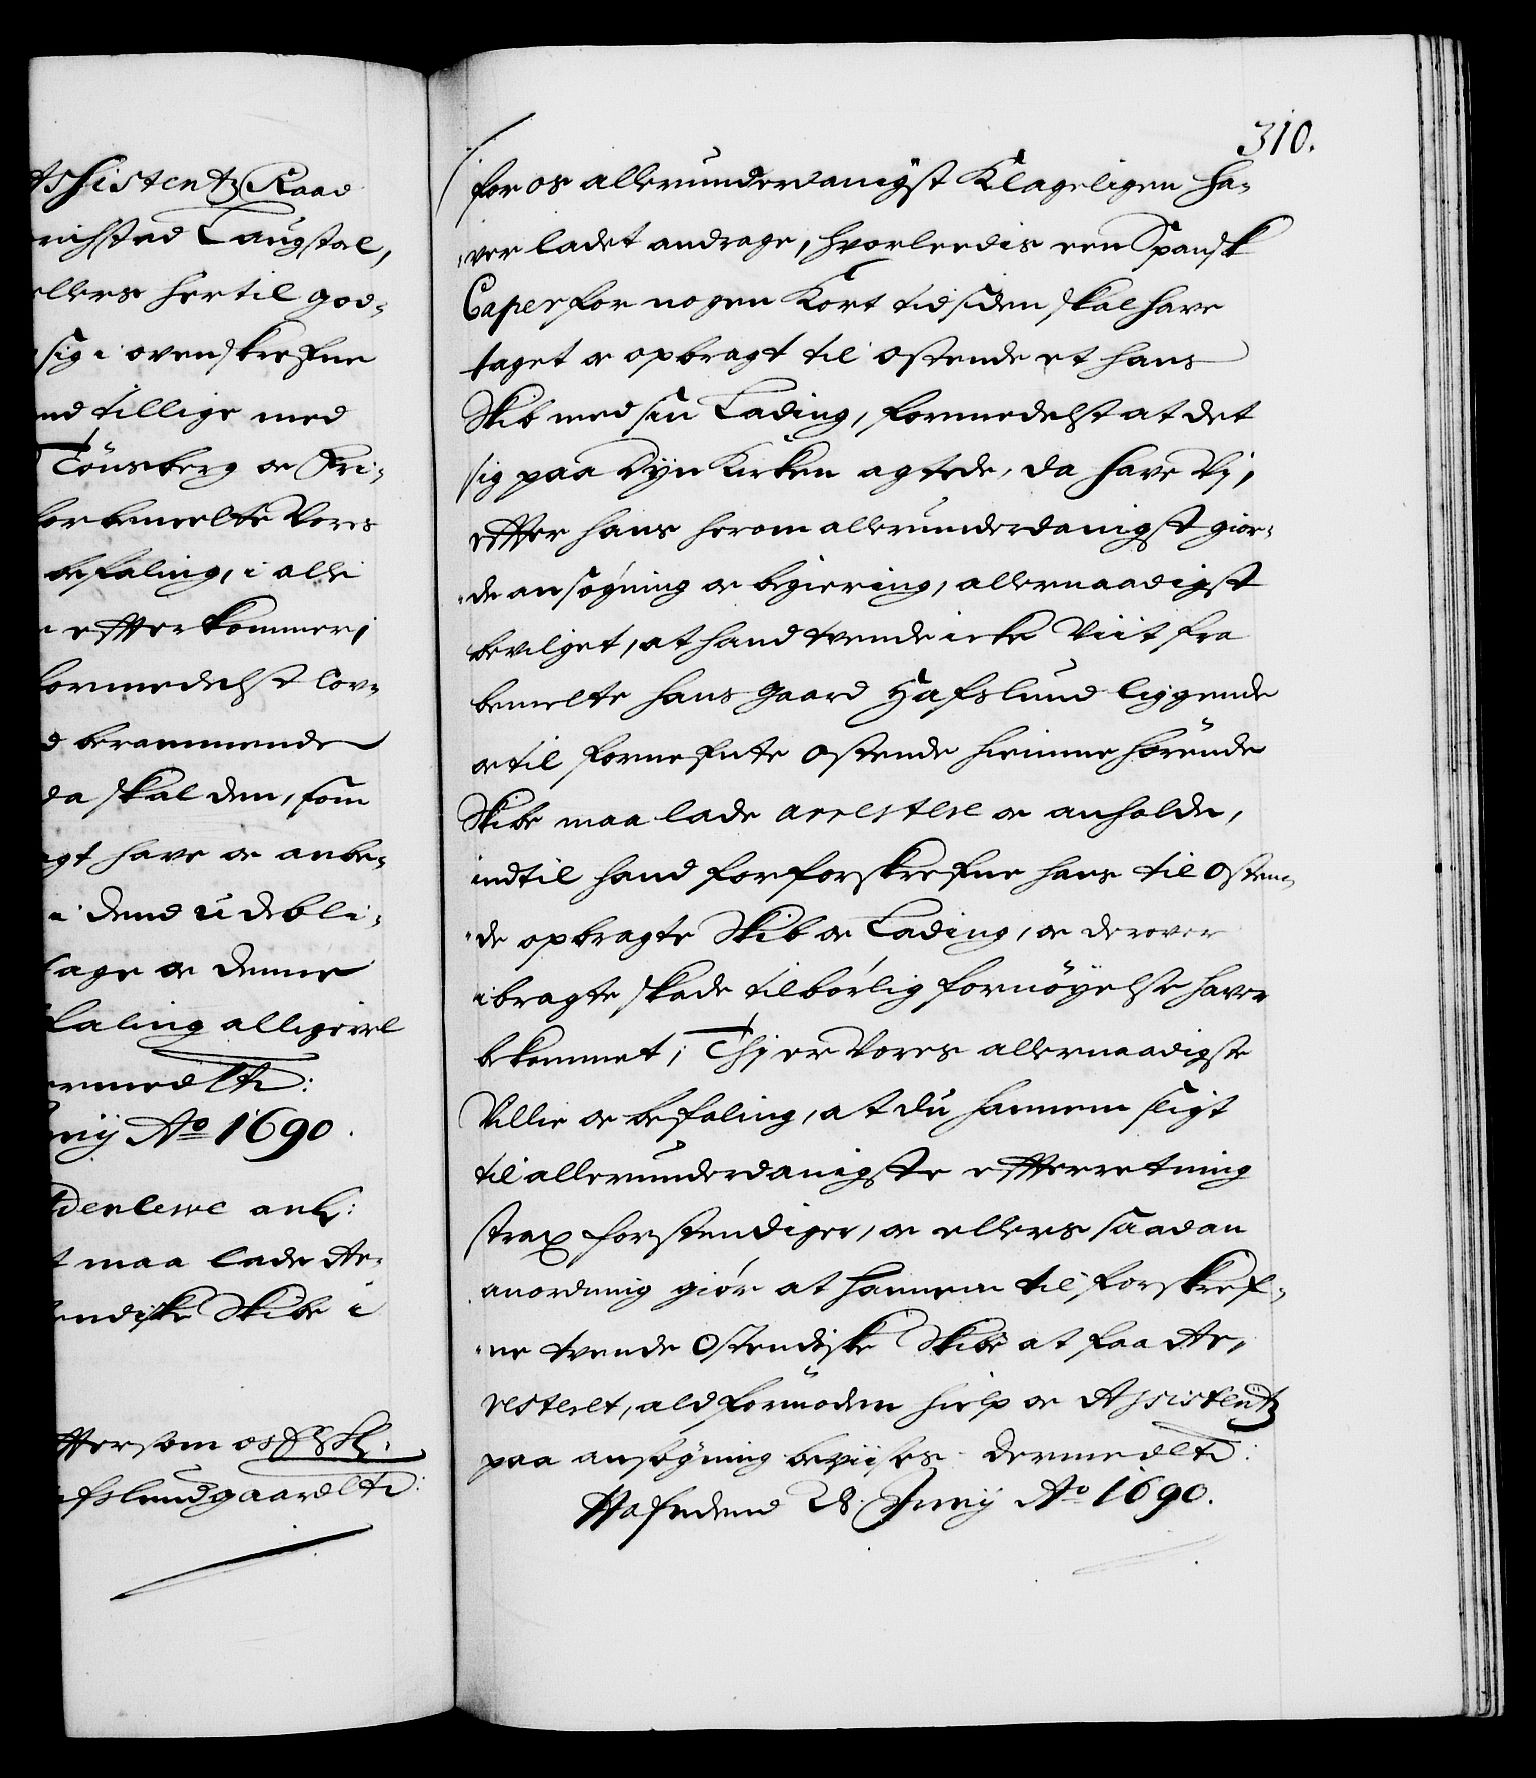 Assistentz Raad
richstad Laugstol,
ellers hertil god-
sig i ovenskrefne
end tillige med
Tönsberg oc Fri-
forbemeelte Vores
befaling, i alle
efterkommer,
formedelst lov-
d berammende
da skal den, som
agt have oc anbe-
i dend udebli-
tage oc denne
faling alligevel
ermed etc:
nij Ao 1690.
Werlewe anl:
t maa lade Ar-
endiske Skibe i
Eftersom os
afslundgaard etc:
310.
for os allerunderdanigst Klageligen ha-
-ver ladet andrage, hvorleedis een Spansk
Caper for nogen Kort tid siden skal have
taget oc opbragt til Ostende et hans
Skib med sin Lading, formedelst at det
sig paa Dynkirken agtede, da have Vj,
efter hans herom allerunderdanigst gior-
-de ansøgning oc begiering, allernaadigst
bevilget, at hand tvende icke Viit fra
bemelte hans gaard Hafslund liggende
oc til fornefnte Ostende hiemmehørende
Skibe maa lade arrestere oc anholde,
indtil hand for forskrefne hans til Osten-
-de opbragte Skib oc Lading, oc derover
ibragte skade tilbørlig fornøyelse haver
bekommet; Thj er Vores allernaadigste
Villie oc befaling, at du hannem sligt
til allerunderdanigste efterretning
strax forstendiger, oc ellers saadan
anordning giør at hannem til forskref-
-ne tvende Ostendiske Skibe at faa Ar-
resteret, ald formoden hielp oc Assistentz
paa ansøgning beviises. Dermed etc:
Hafn dend 28. Junij Ao 1690.